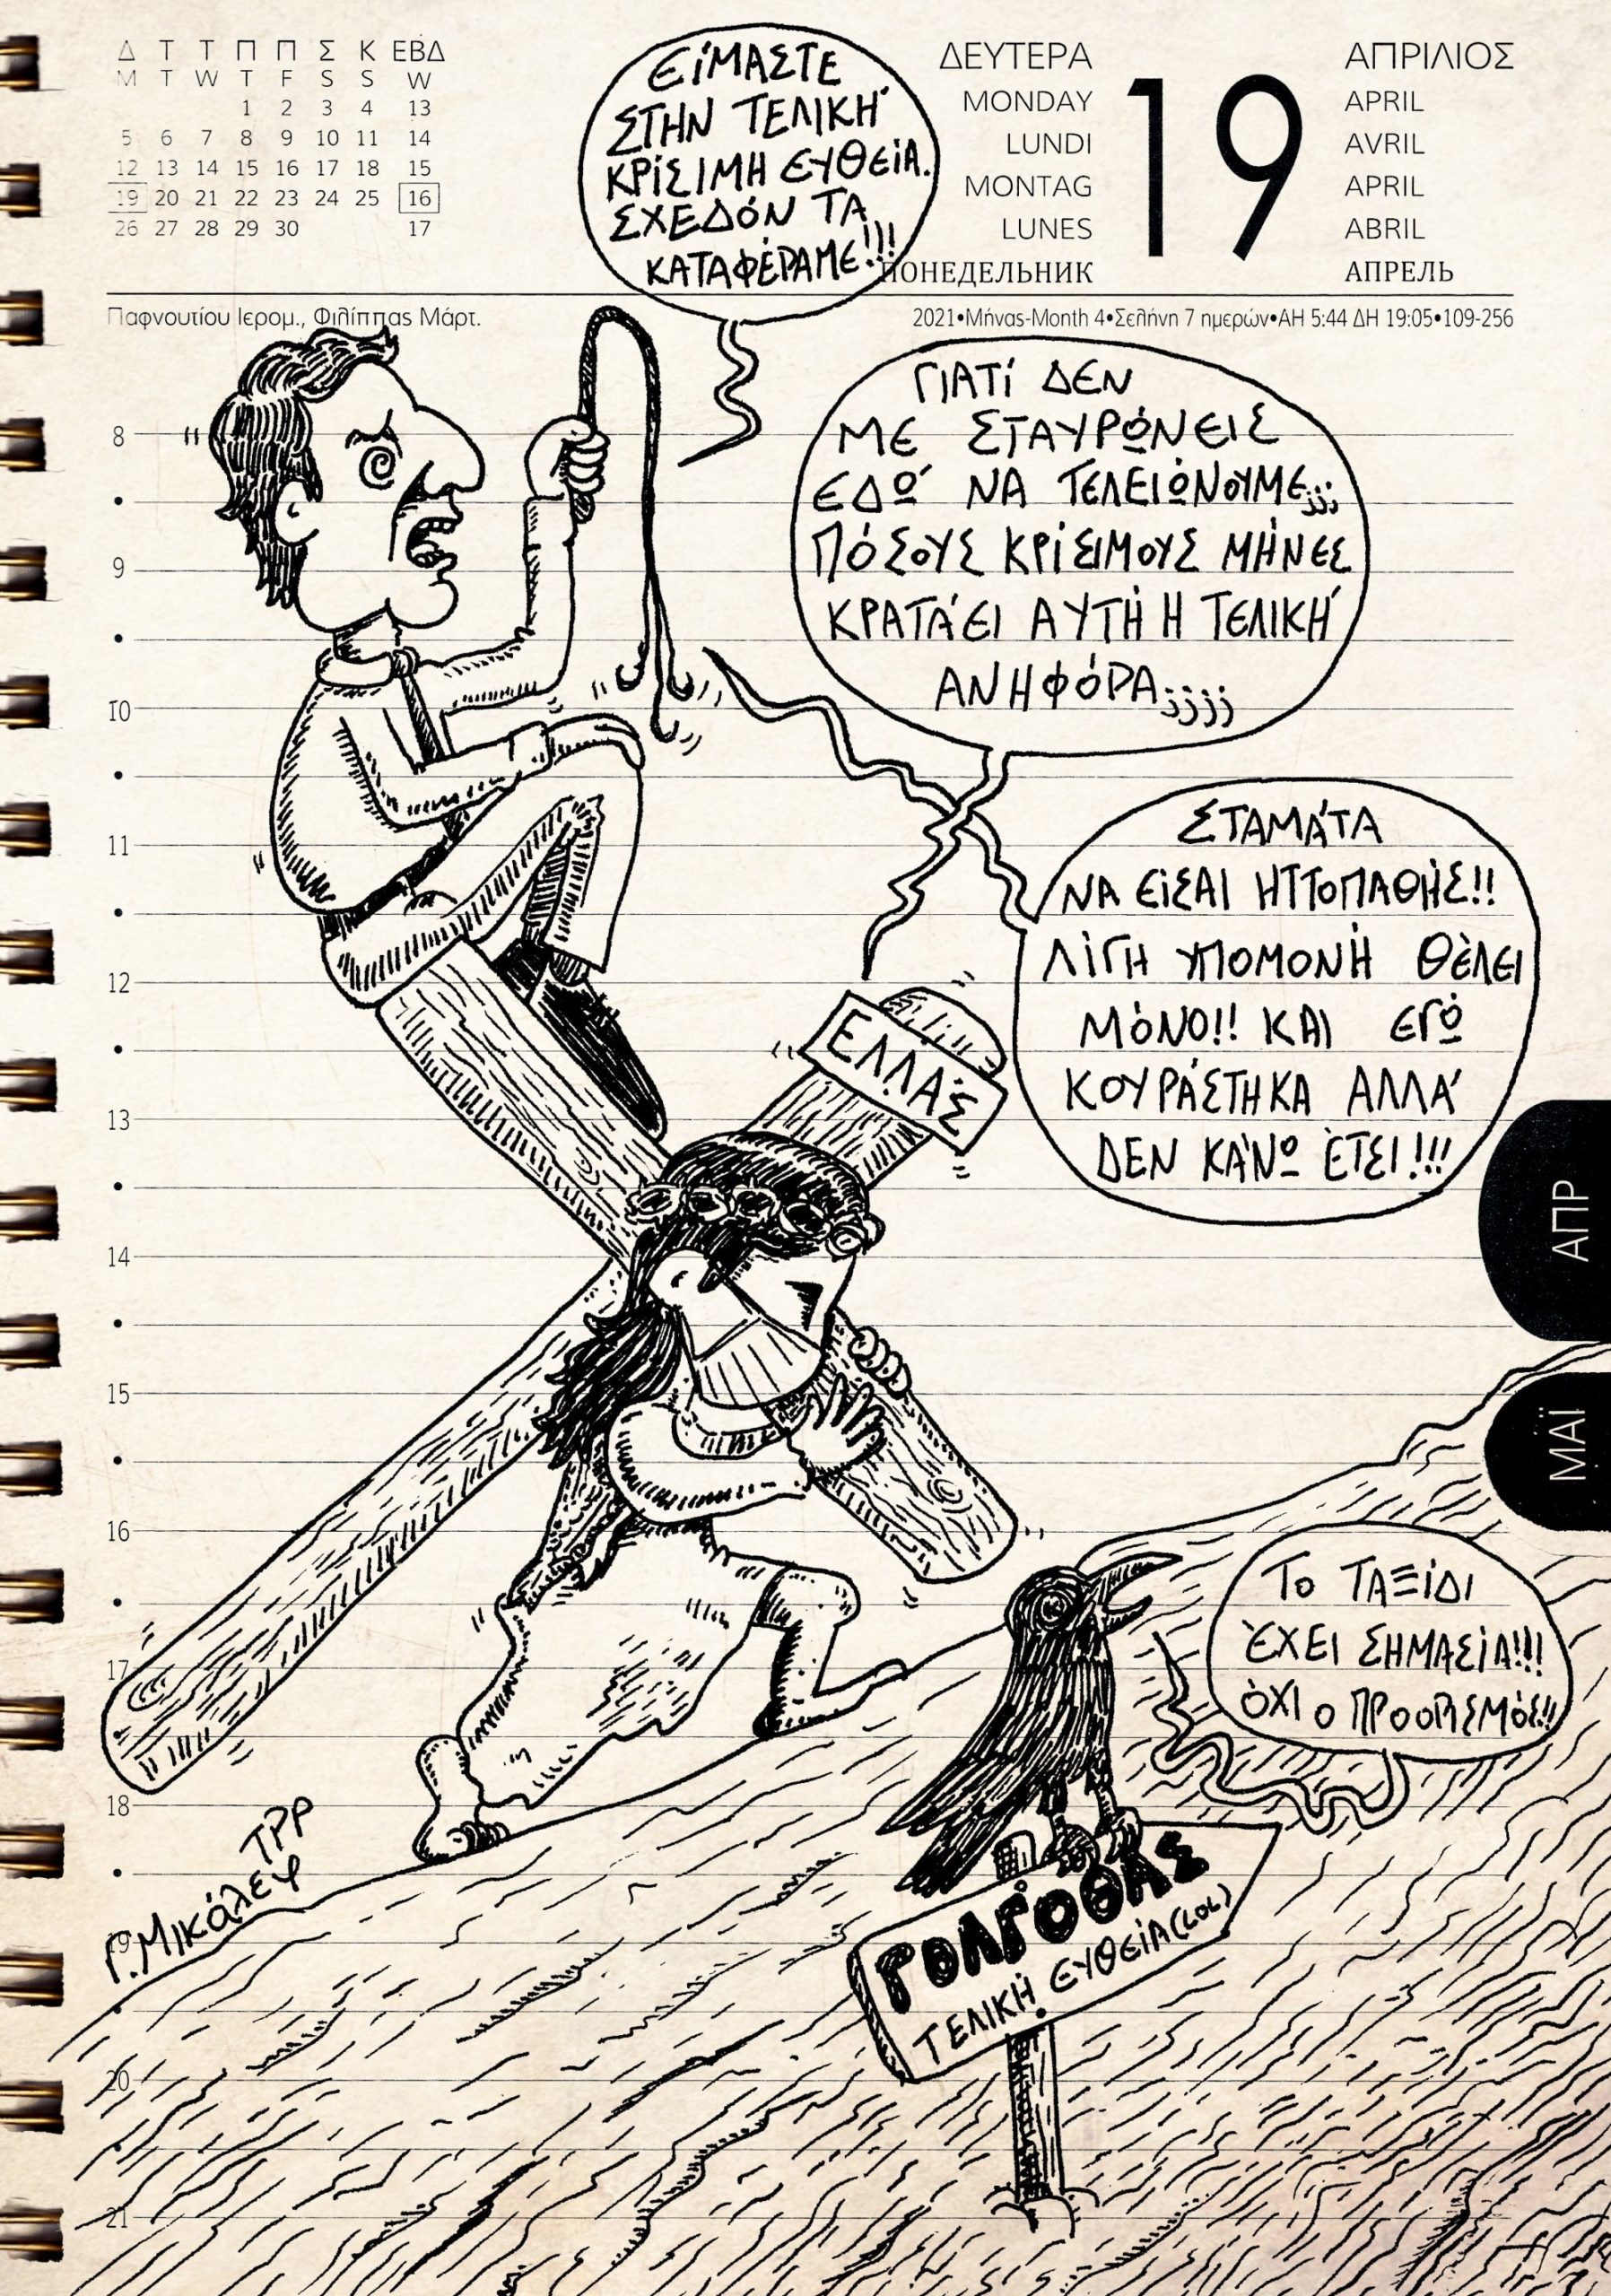 Δ Τ Τ Π Π Σ Κ ΕΒΔ
M T W T F S S W
1 2 3 4 13
5 6 7 8 9 10 11 14
12 13 14 15 16 17 18 15
19 20 21 22 23 24 25 16
26 27 28 29 30 17
ΕίΜΑΣΤΕ
ΣΤΗΝ ΤΕΛΙΚΉ
ΚΡίΣΙΜΗ ΕΥΘΕίΑ.
ΣΧΕΔΌΝ ΤΑ
ΚΑΤΑΦΈΡΑΜΕ!!!
ΔΕΥΤΕΡΑ
MONDAY
LUNDI
MONTAG
LUNES
ПОНЕДЕЛЬНИК
19
ΑΠΡΙΛΙΟΣ
APRIL
AVRIL
APRIL
ABRIL
АПРЕЛЬ
Παφνουτίου Ιερομ., Φιλίππας Μάρτ.
2021•Μήνας-Month 4•Σελήνη 7 ημερών•ΑΗ 5:44 ΔΗ 19:05•109-256
ΓΙΑΤί ΔΕΝ
ΜΕ ΣΤΑΥΡΏΝΕΙΣ
ΕΔΏ ΝΑ ΤΕΛΕΙΏΝΟΥΜΕ;;;
ΠΌΣΟΥΣ ΚΡίΣΙΜΟΥΣ ΜΉΝΕΣ
ΚΡΑΤΆΕΙ ΑΥΤΉ Η ΤΕΛΙΚΉ
ΑΝΗΦΌΡΑ;;;;
ΣΤΑΜΆΤΑ
ΝΑ ΕίΣΑΙ ΗΤΤΟΠΑΘΉΣ!!
ΛίΓΗ ΥΠΟΜΟΝΉ ΘΈΛΕΙ
ΜΌΝΟ!! ΚΑΙ ΕΓΏ
ΚΟΥΡΆΣΤΗΚΑ ΑΛΛΆ
ΔΕΝ ΚΆΝΩ ΈΤΣΙ!!!
ΕΛΛΆΣ
ΑΠΡ
ΜΑΪ
ΤΟ ΤΑΞίΔΙ
ΈΧΕΙ ΣΗΜΑΣίΑ!!!
ΌΧΙ Ο ΠΡΟΟΡΙΣΜΌΣ!!!
ΓΟΛΓΟΘΆΣ
ΤΕΛΙΚΉ ΕΥΘΕίΑ (LOL)
ΤΡΡ
Γ. Μικάλεφ
8
9
10
11
12
13
14
15
16
17
18
19
20
21